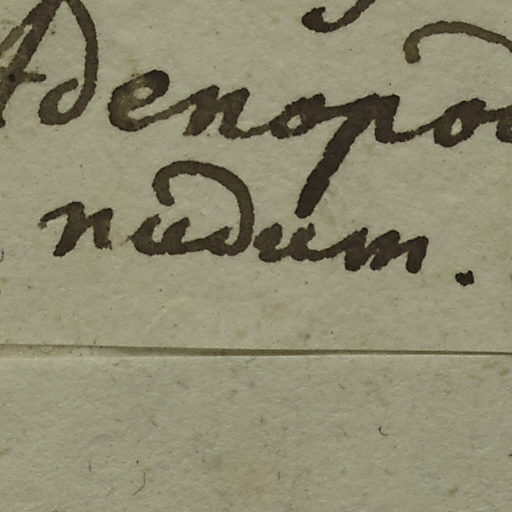 Adenopod
nudum.